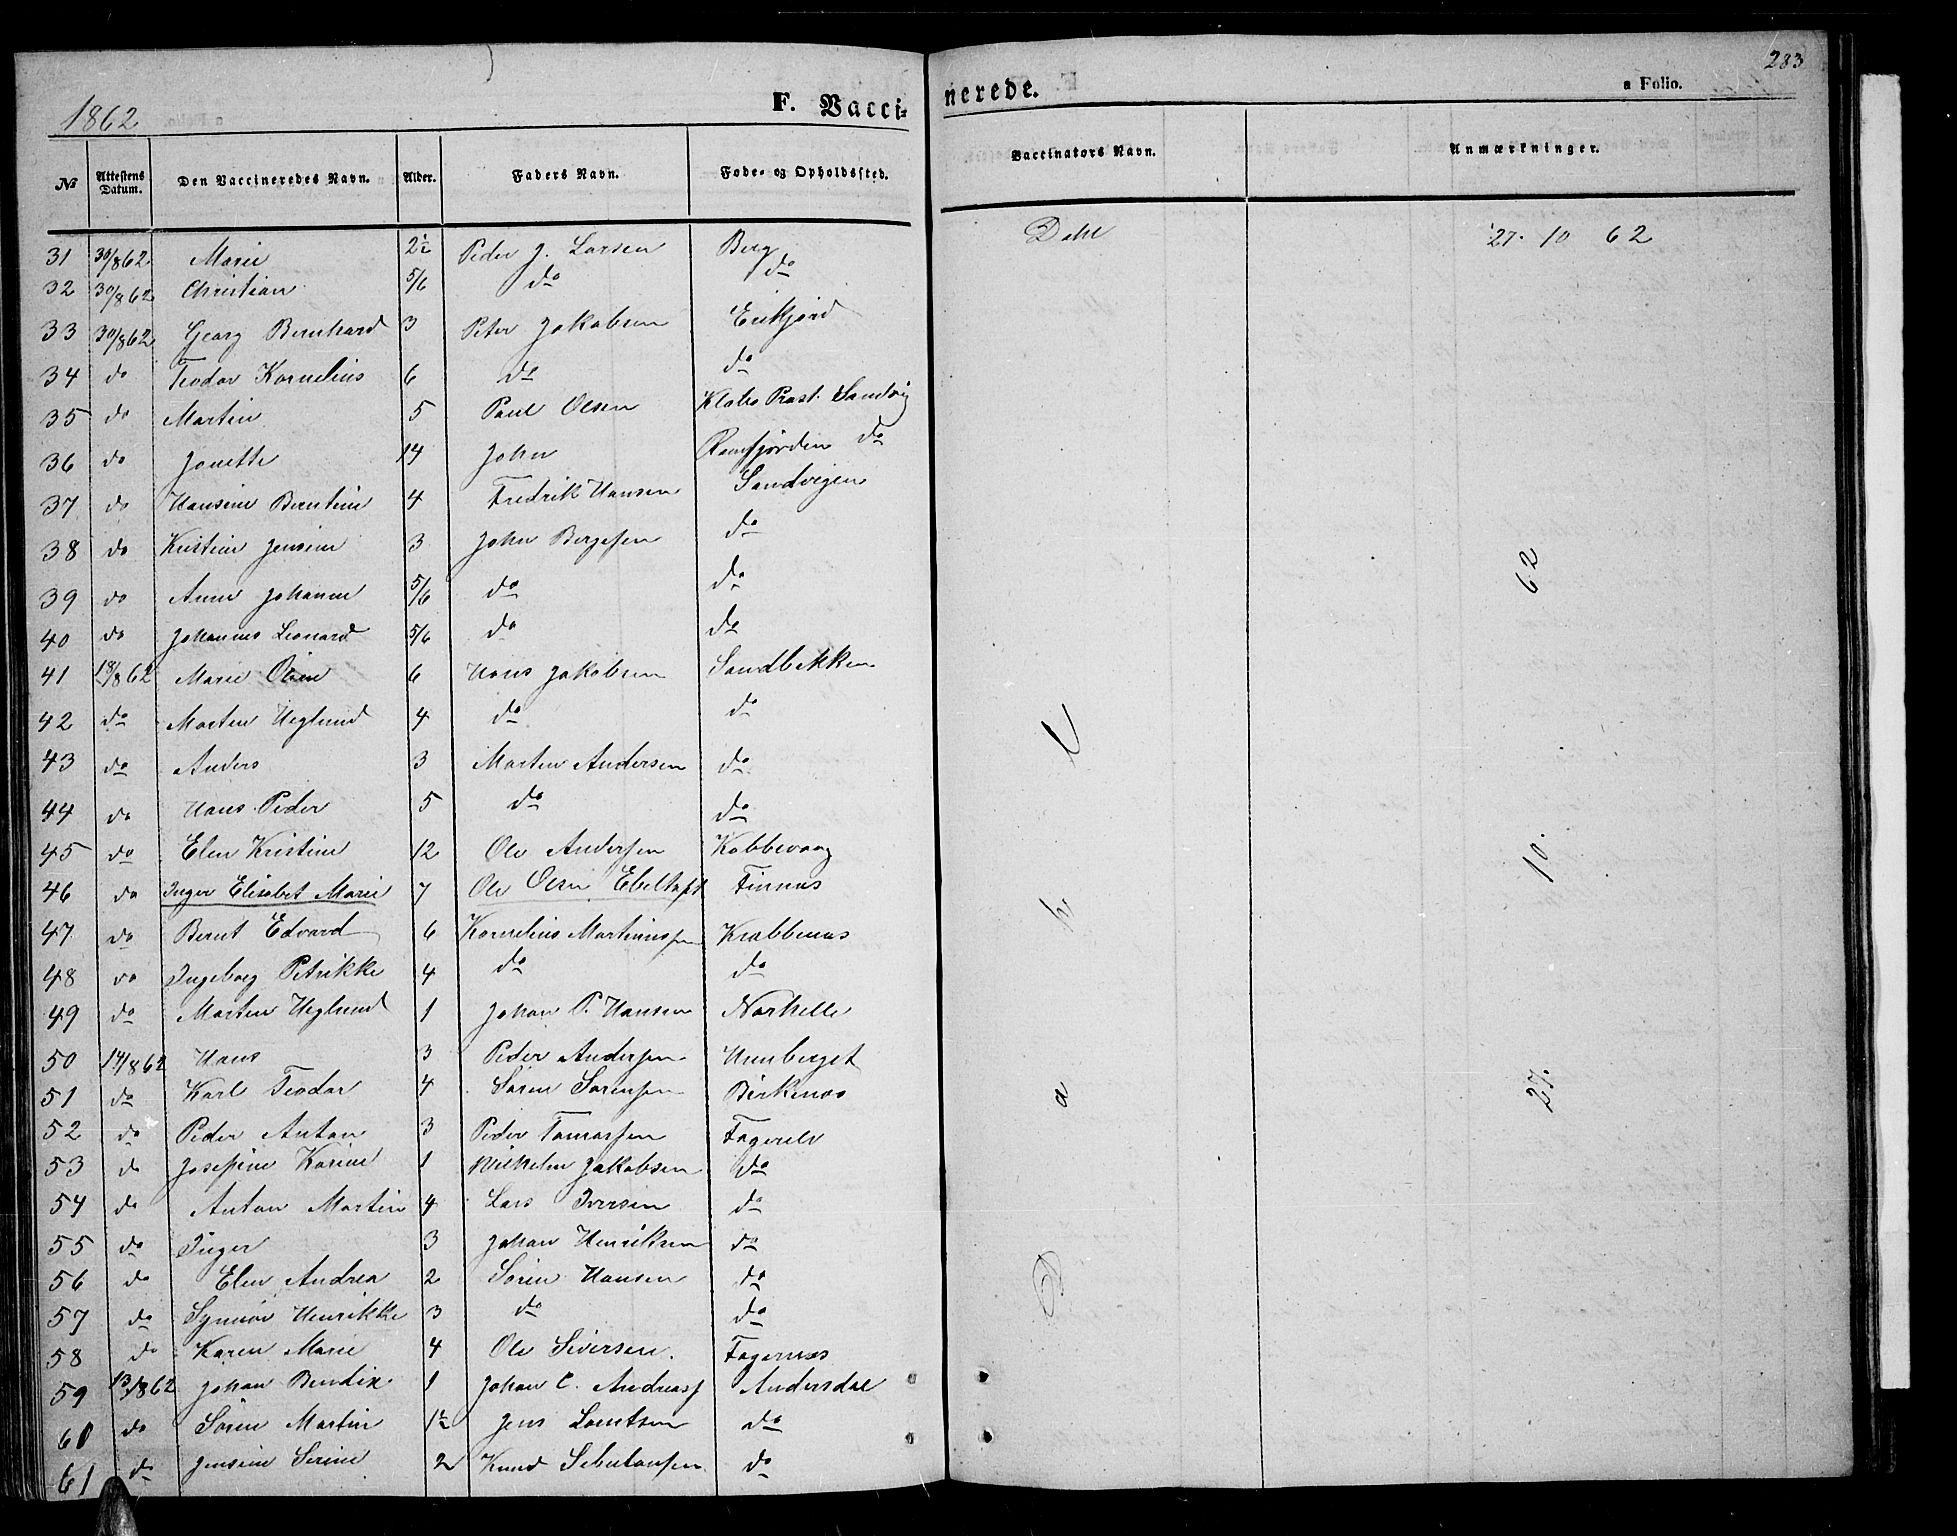 283
1862
F. Vaccinerede.
a Folio.
№ | Attestens Datum. | Den Vaccineredes Navn. | Alder. | Faders Navn. | Føde- og Opholdssted. | Vaccinators Navn. | Anmærkninger.
31 30/8 62 Marie 2½ Peder J. Larsen Berg Dahl 27. 10 62
32 30/8 62 Christian 5/6 do do
33 30/8 62 Georg Bernhard 3 Peter Jakobsen Erikjord
34 do Teodor Kornelius 6 do do
35 do Martin 5 Paul Olsen Klabo Præst. Sandvig
36 do Jonette 14 John Ramfjorden do
37 do Hansine Berntine 4 Fredrik Hansen Sandvigen
38 do Kristine Jensine 3 John Bergesen do
39 do Anne Johanne 5/6 do do
40 do Johannes Leonard 5/6 do do
41 18/8 62 Marie Oline 6 Hans Jakobsen Sandbakken
42 do Morten Heglund 4 do do
43 do Anders 3 Morten Andersen do
44 do Hans Peder 5 do do
45 do Elen Kristine 12 Ole Andersen Kobbevaag
46 do Inger Elisabet Marie 7 Ole Olsen Ebeltoft Finnæs
47 do Bernt Edvard 6 Kornelius Martinussen Krabbenæs
48 do Ingeborg Petrikke 4 do do
49 do Morten Heglund 1 Johan P. Hansen Norkelle
50 14/8 62 Hans 3 Peder Andersen Hunberget
51 do Karl Teodor 4 Søren Sørensen Birkenæs
52 do Peder Anton 3 Peder Tomassen Fagerelv
53 do Josefine Karine 1 Wilhelm Jakobsen do
54 do Anton Martin 4 Lars Iversen do
55 do Inger 3 Johan Henriksen do
56 do Elen Andrea 2 Søren Hansen do
57 do Synnøv Henrikke 3 do do
58 do Karen Marie 4 Ole Siversen. Fagernæs
59 13/8 62 Johan Bendix 1 Johan C. Andreass Andersdal
60 do Søren Martin 1½ Jens Lorntsen do
61 do Jensine Serine 2 Knud do
D a h l
27. 10. 62